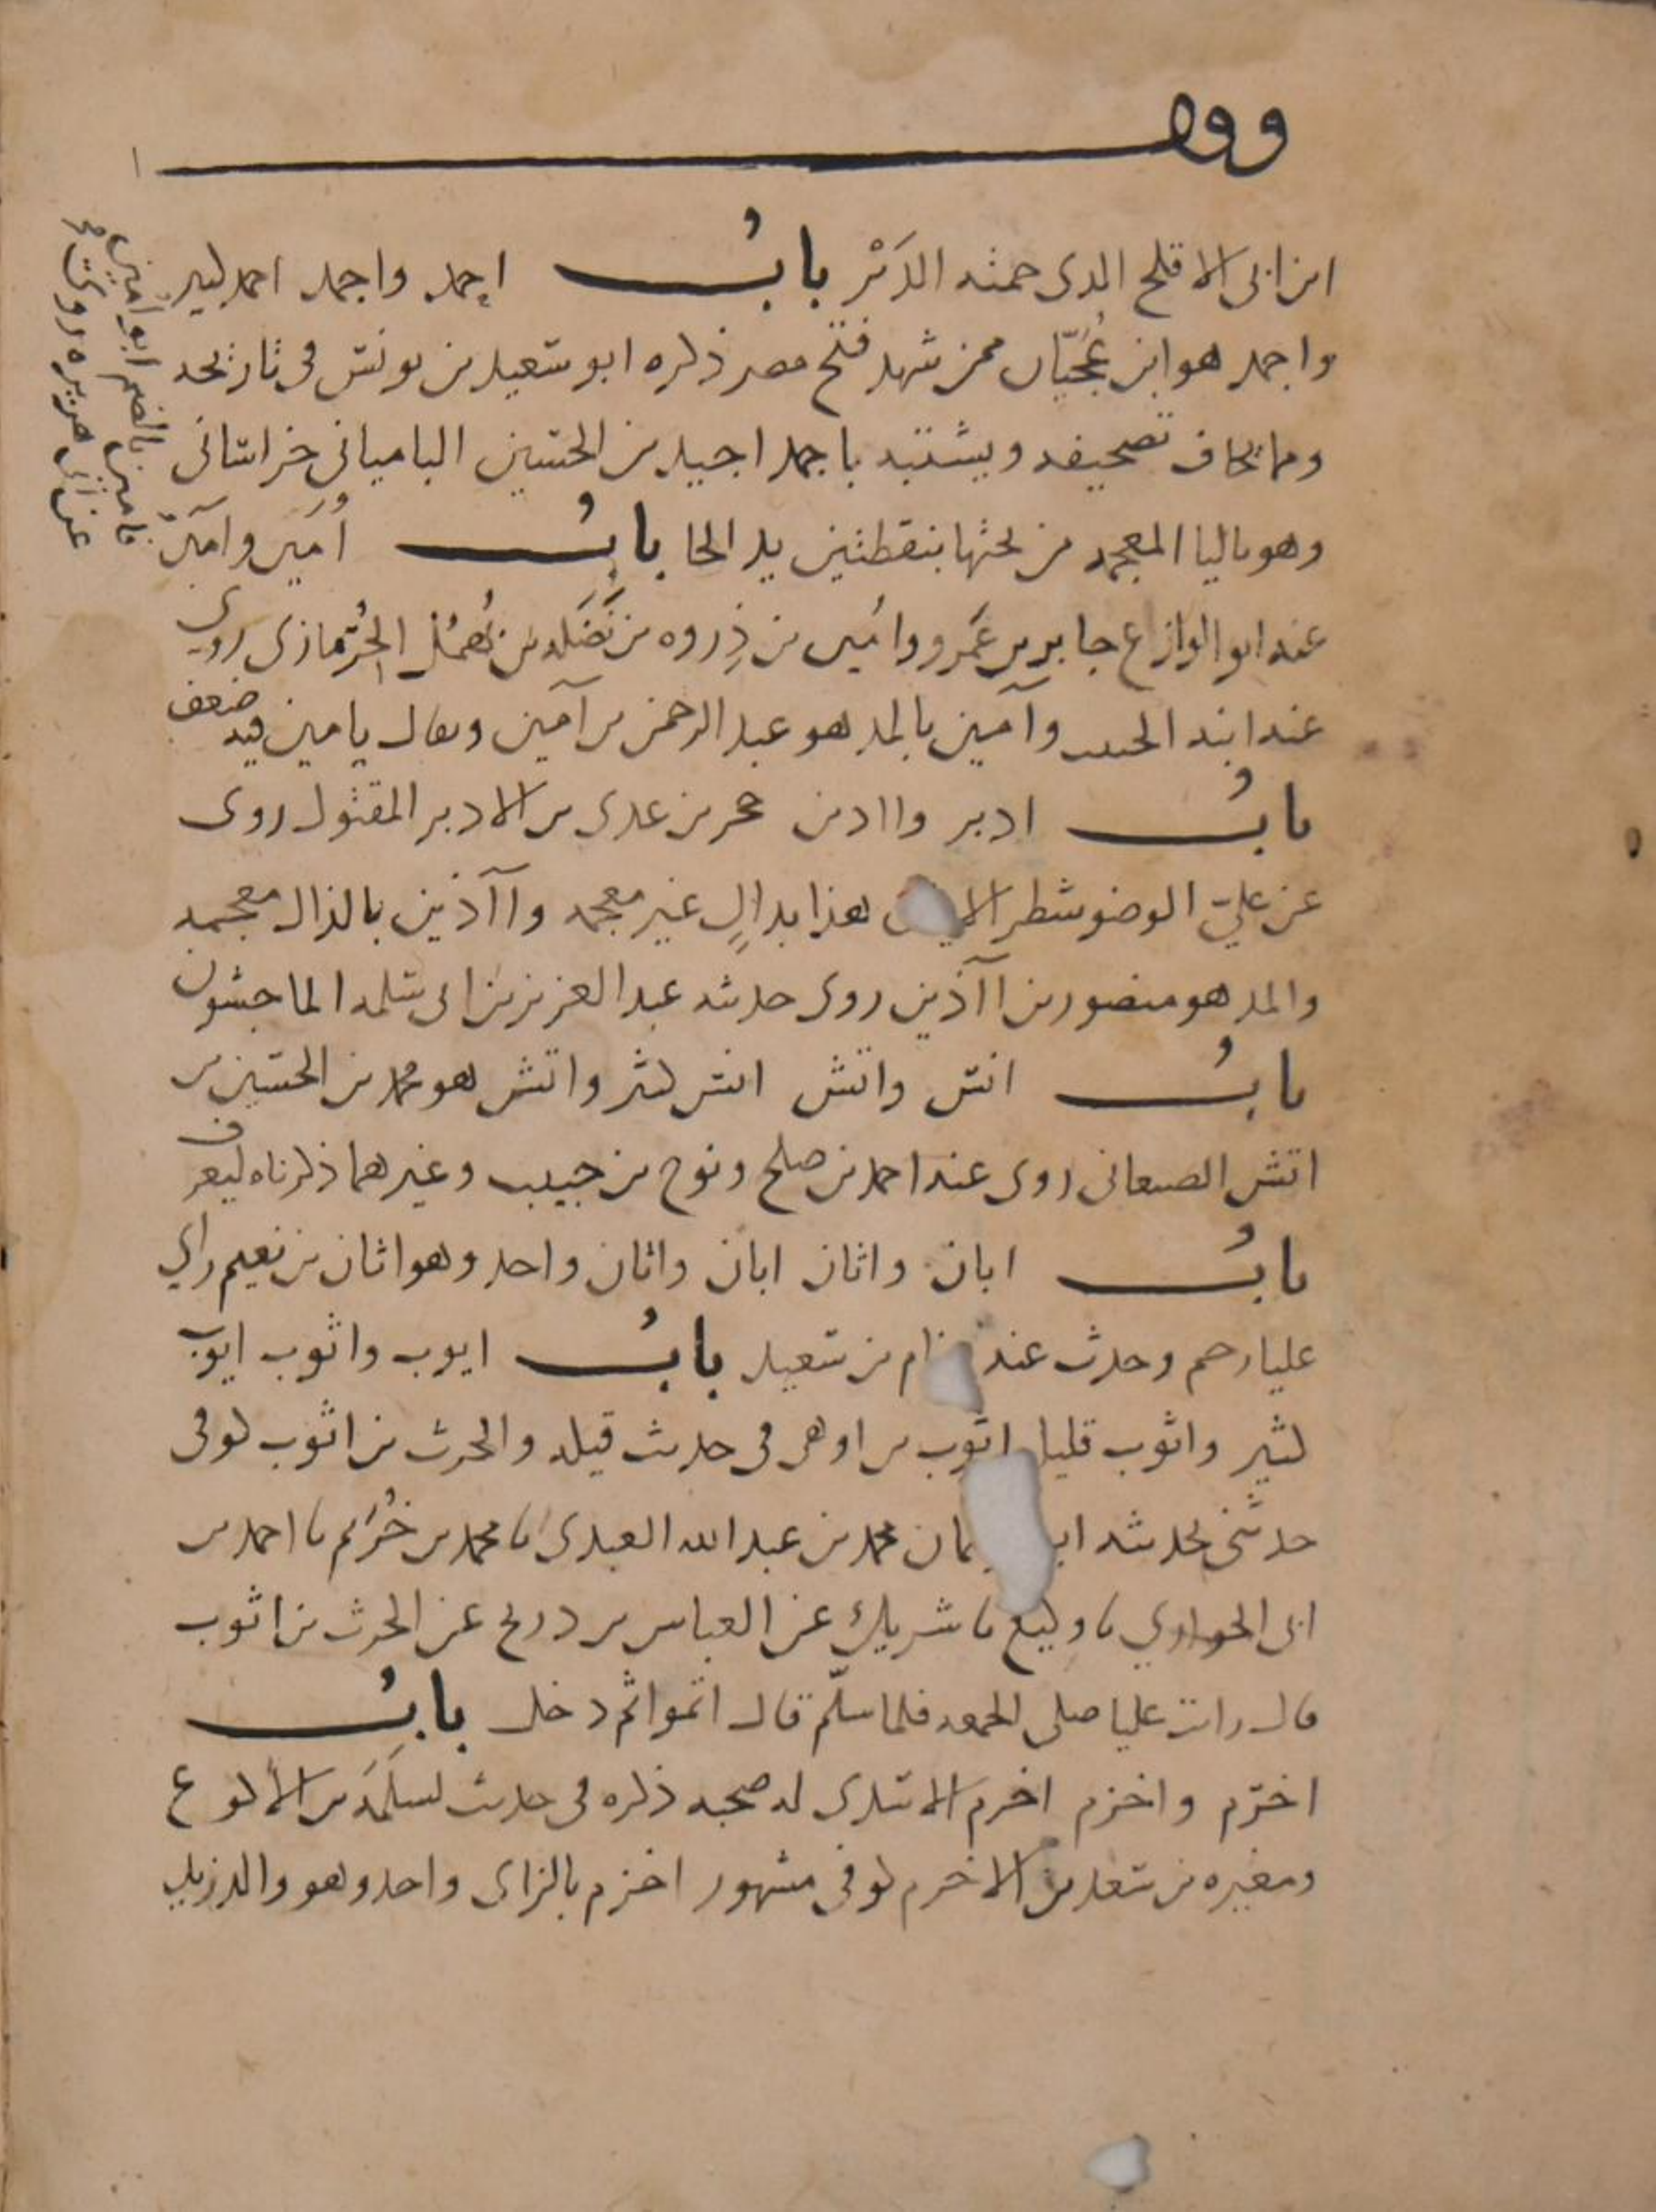 وقف
ابن ابى الاقلح الذى حمته الدَبْر بابُ احمد واجمد احمد كثير
واجمد هو ابن عُجَيّان ممن شهد فتح مصر ذكره ابو سعيد بن يونس فى تاريخه
ومما يخاف تصحيفه ويشتبه باجمد اجيد بن الحسين الباميانى خراسانى
وهو باليا المعجمه من تحتها بنقطتين بدل الحا بابُ أُمَين وآمين
عنه ابو الوازع جابر بن عَمرو وامُين بن ذِروه بن نَضَله بن نُهصُل الحُرمازى روى
عنه ابنه الحسن وآمين بالمد هو عبد الرحمن بن آمين ويقال يامين فيه ضعف
بابُ ادبر وااذين حجر بن عدى بن الادبر المقتول روى
عن عليّ الوضو شطر هذا بدالٍ غير معجمه واآذين بالذال معجمه
والمد هو منصور بن اآذين روى حديثه عبد العزيز بن ابى سلمه الماجشون
بابُ انس واتش انس كثير واتش هو محمد بن الحسين بن
اتش الصنعانى روى عنه احمد بن صلح ونوح بن حبيب وغيرهما ذكرناه ليعرف
بابُ ابان واثان ابان واثان واحد وهو اثان بن نعيم راي
عليا رحم وحدث عنه بن سعيد بابُ ايوب واثوب ايوب
كثير واثوب قليل اثوب بن اوهى فى حديث قيله والحرث بن اثوب كوفى
حدثنى بحديثه محمد بن عبد الله العبدى نا محمد بن خُرَيم نا احمد بن
ابى الحوارى نا وكيع نا شريك عن العباس بن دريح عن الحرث بن اثوب
قال رايت عليا صلى الجمعه فلما سلّم قال اتموا ثم دخل بابُ
اخرم واخزم اخرم الاسدى له صحبه ذكره فى حديث لسلَمَه بن الاكوع
ومغيره بن سعد بن الاخرم كوفى مشهور اخزم بالزاى واحد وهو والد زيد
امين بالضم ابو امين
عن ابى هريره روت